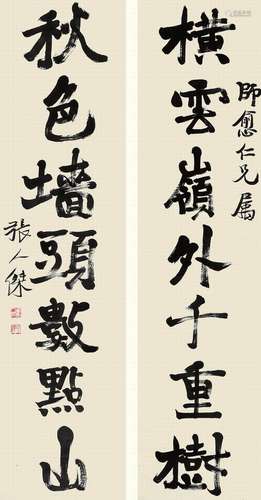 師愈仁兄属
橫雲嶺外千重樹
秋色墻頭數點山
張人傑